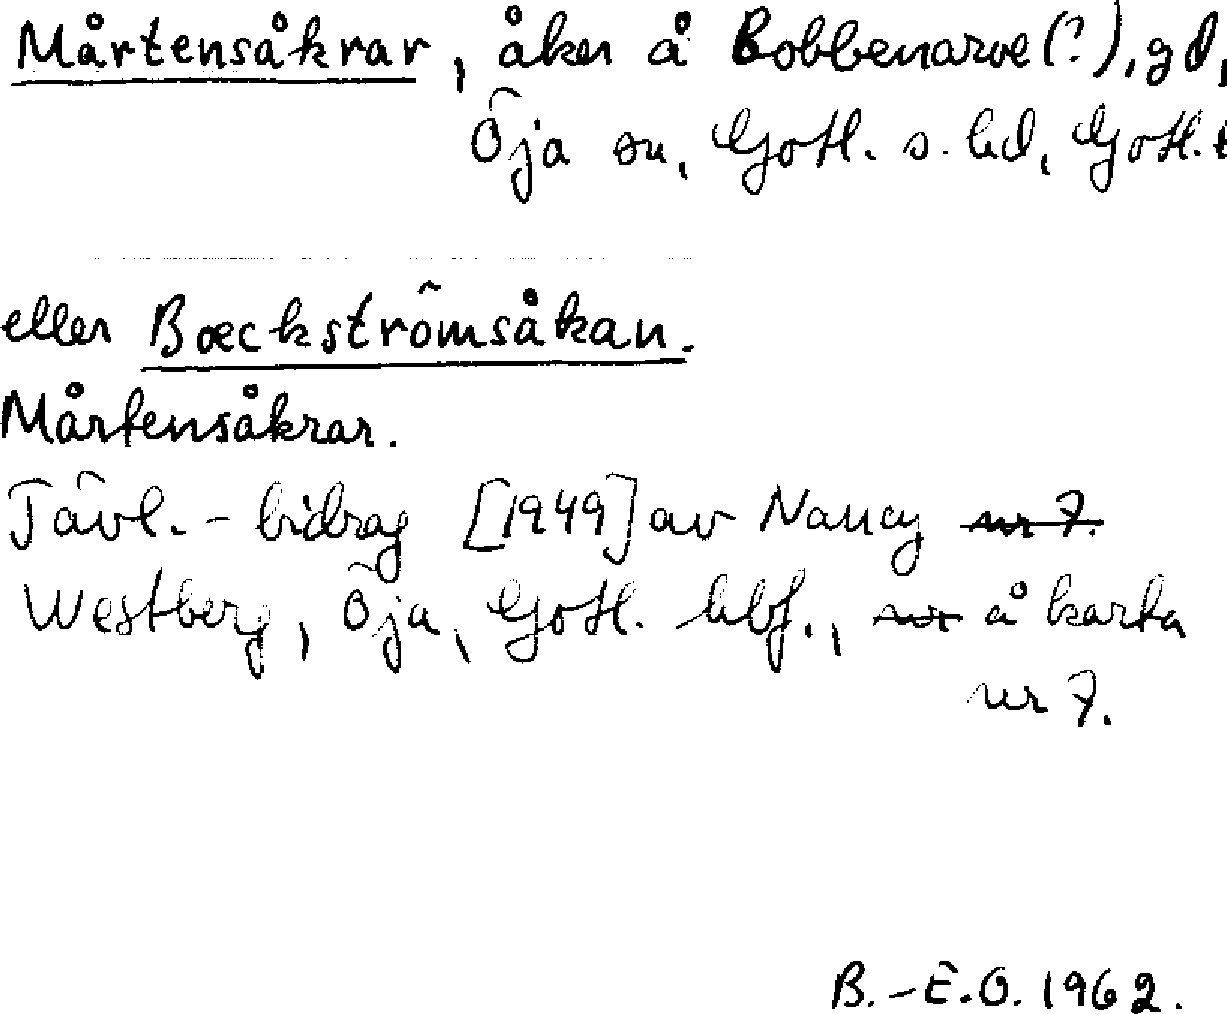 Mårtensåkrar, åker å Bobbenarve(?), gd,
Öja sn, Gotl. s. hd, Gotl.
eller Bæckströmsåkan.
Mårtensåkrar.
Tävl.-bidrag [1949] av Nancy nr 7.
Westberg, Öja, Gotl. hbf., nr å karta
nr 7.
B.-E.O. 1962.